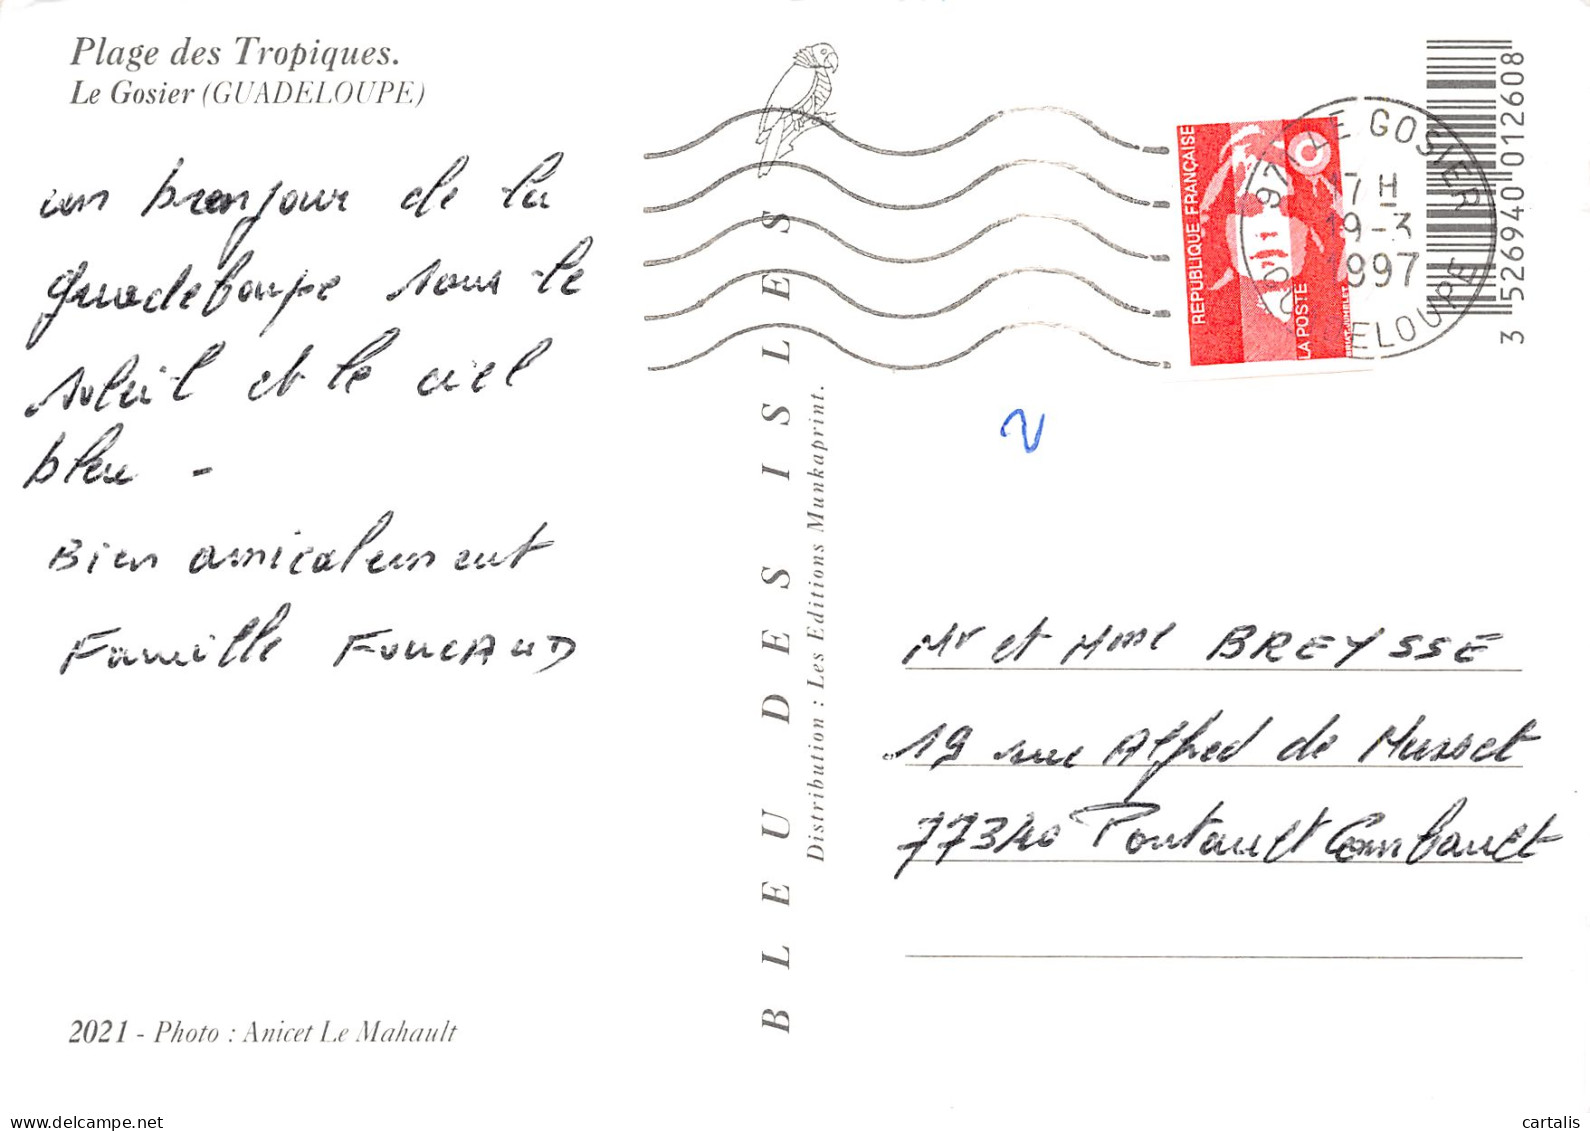 Plage des Tropiques.
Le Gosier (GUADELOUPE)
un bonjour de la
guadeloupe sous le
soleil et le ciel
bleu -
Bien amicalement
Famille FOUCAUD
2021 - Photo : Anicet Le Mahault
BLEU DES ISLES
Distribution : Les Editions Munkaprint.
REPUBLIQUE FRANÇAISE
LA POSTE
971 LE GOSIER
17 H
19-3
1997
ELOUPE
3 526940 012608
Mr et Mme BREYSSE
19 rue Alfred de Musset
77340 Pontault Combault
delcampe.net
cartalis